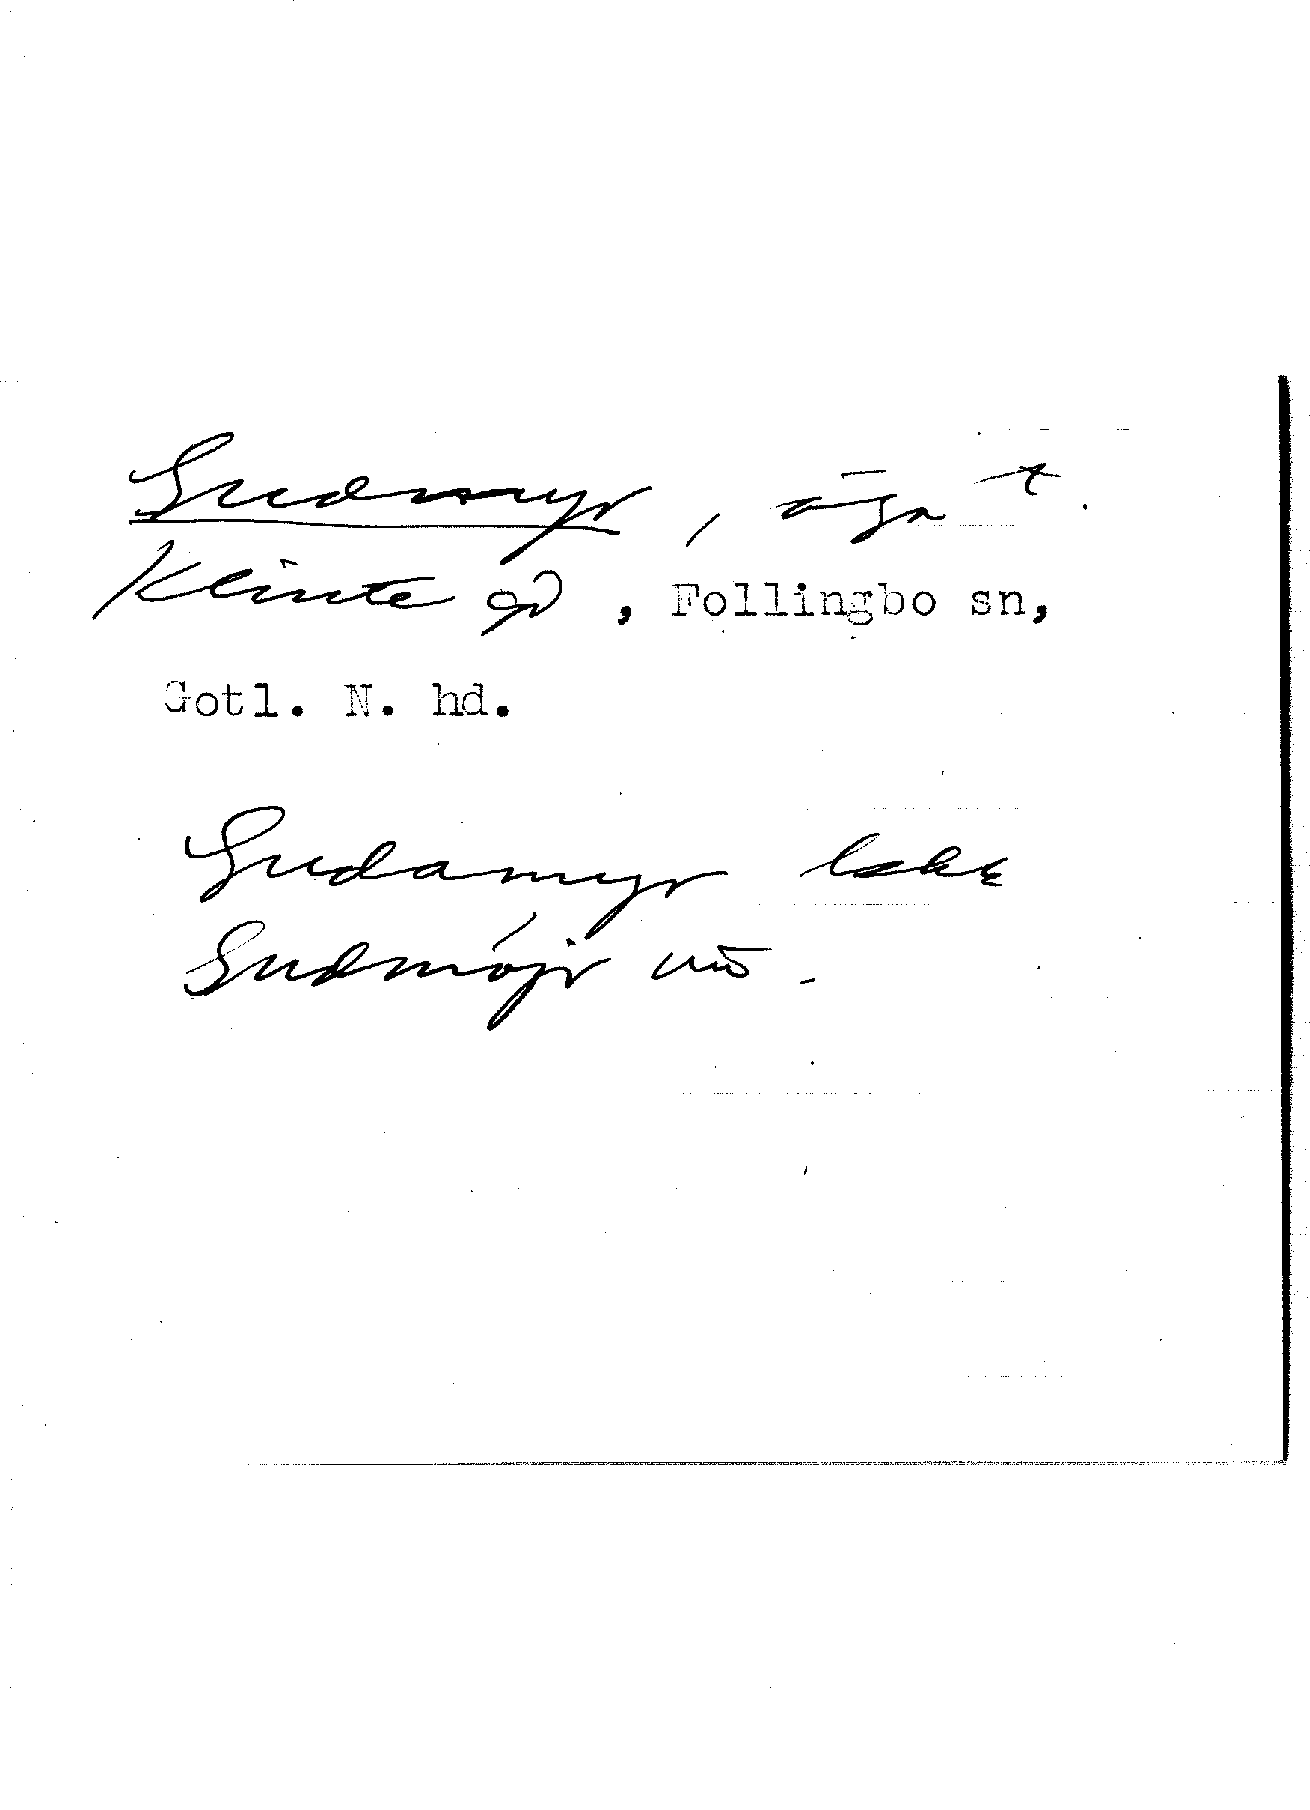 Sudmyr, äga t.
Klinte gd, Follingbo sn,
Gotl. N. hd.
Sudamyr
Sudmöjr